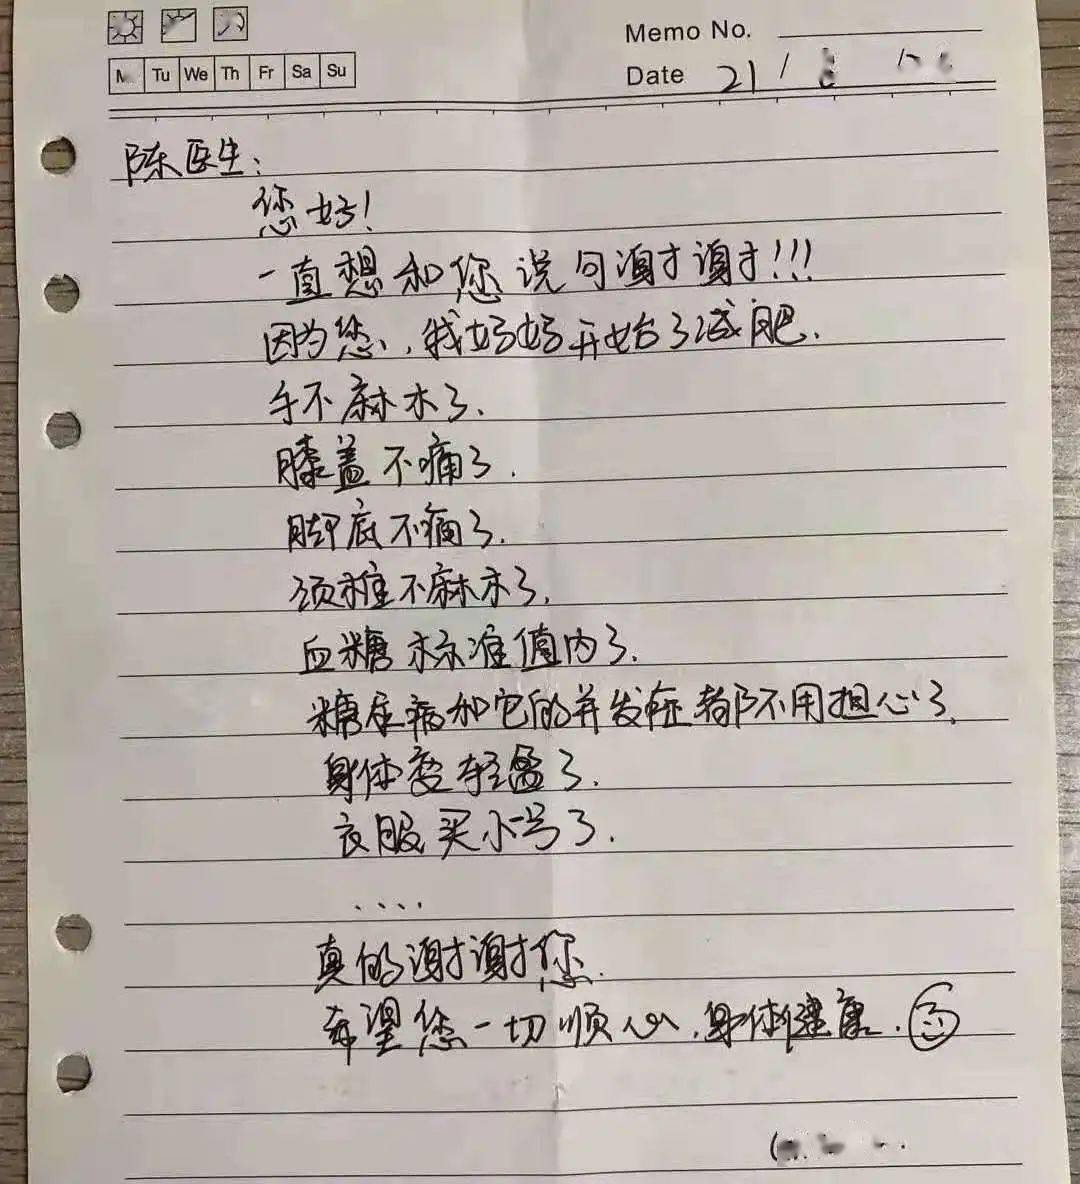 Memo No.
Tu We Th Fr Sa Su
Date 21 /
陈医生：
您好！
一直想和您说句谢谢!!!
因为您，我好好开始了减肥.
手不麻木了.
膝盖不痛了.
脚底不痛了.
颈椎不麻木了.
血糖标准值内了.
糖尿病和它的并发症都不用担心了.
身体变轻盈了.
衣服买小号了.
....
真的谢谢您.
希望您一切顺心，身体健康.